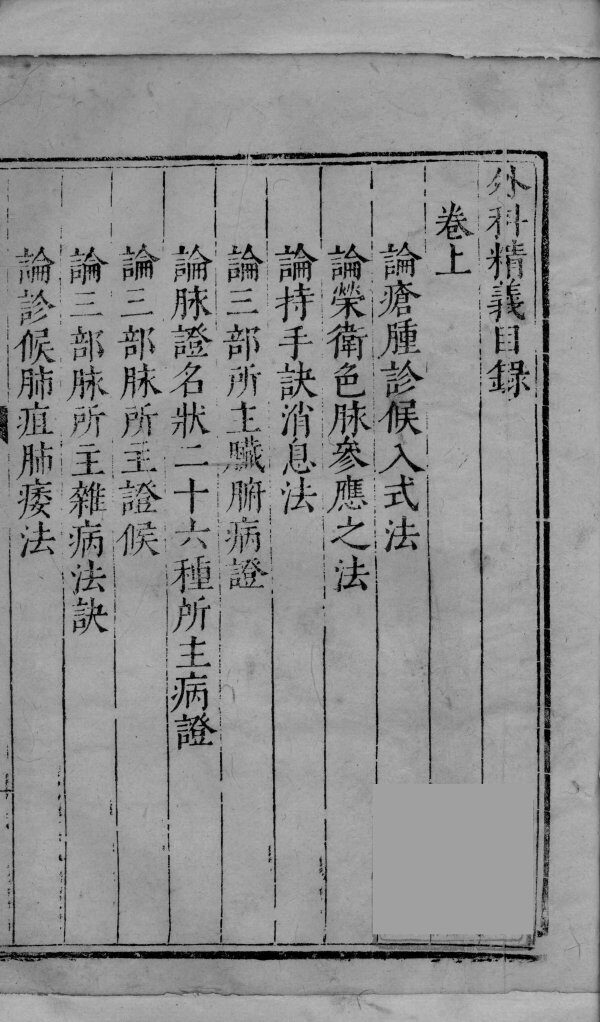 外科精義目錄
卷上
論瘡腫診候入式法
論榮衛色脉參應之法
論持手訣消息法
論三部所主臟腑病證
論脉證名狀二十六種所主病證
論三部脉所主證候
論三部脉所主雜病法訣
論診候肺疽肺痿法